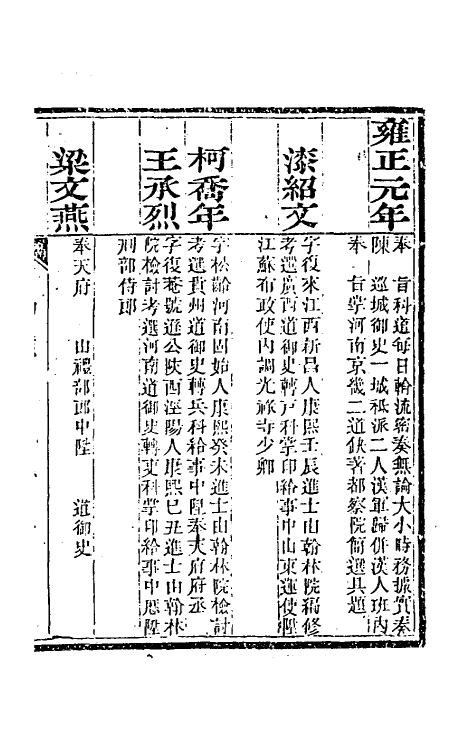 雍正元年
奉　旨科道每日輪流密奏無論大小時務據實奏
陳　巡城御史一城祇派二人漢軍歸併漢人班內
奉　旨掌河南京畿二道缺著都察院簡選具題
漆紹文
字復來江西新昌人康熙壬辰進士由翰林院編修
考選廣西道御史轉戶科掌印給事中山東運使陞
江蘇布政使內調光祿寺少卿
柯喬年
字松齡河南固始人康熙癸未進士由翰林院檢討
考選貴州道御史轉兵科給事中陞奉天府府丞
王承烈
字復菴號遜公陝西涇陽人康熙己丑進士由翰林
院檢討考選河南道御史轉吏科掌印給事中歷陞
刑部侍郎
梁文燕
奉天府　　由禮部郎中陞　　道御史